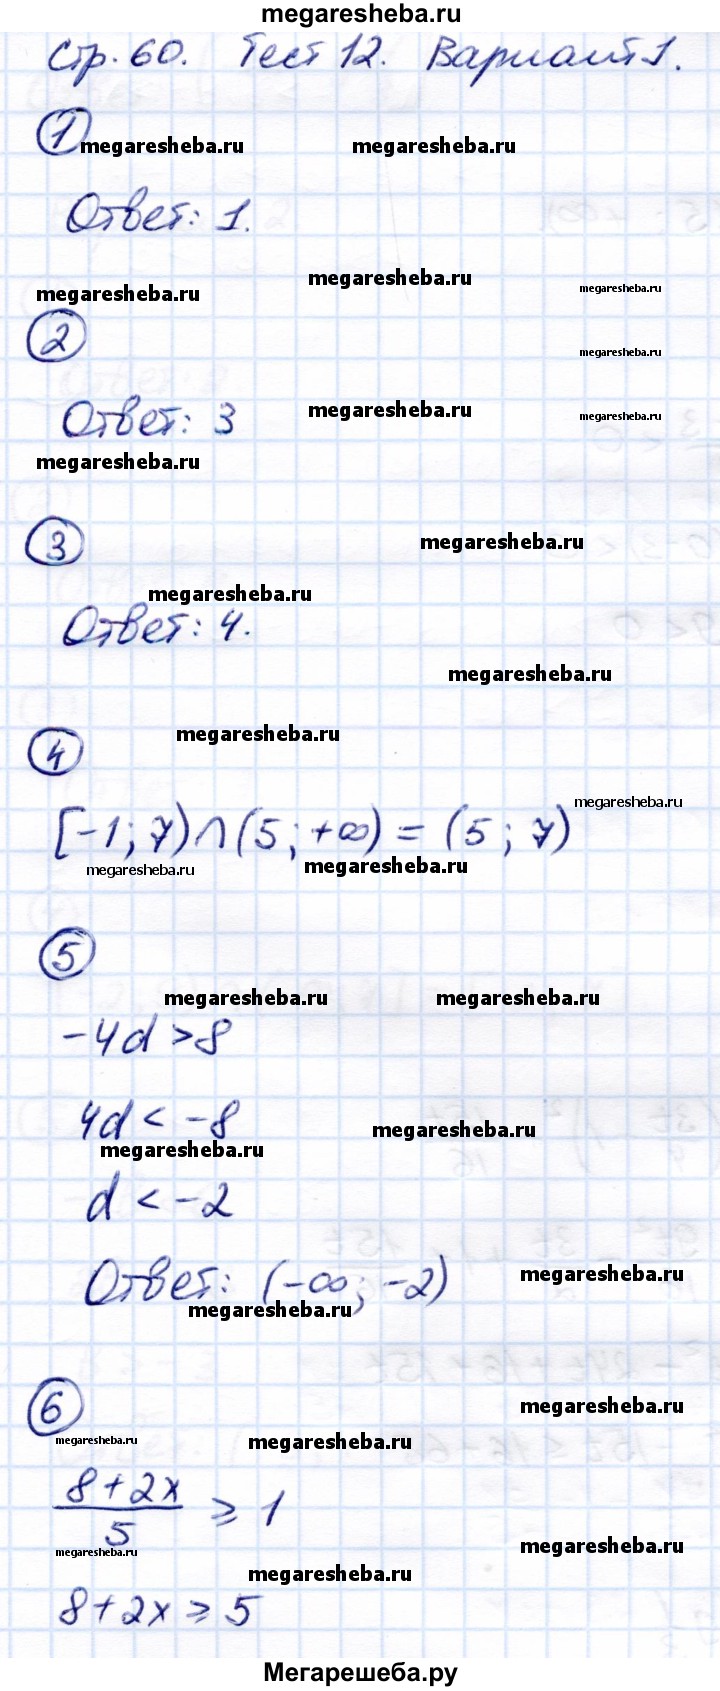 megaresheba.ru
Стр. 60. Тест 12. Вариант 1.
1
megaresheba.ru megaresheba.ru
Ответ: 1.
megaresheba.ru
megaresheba.ru
megaresheba.ru
2
megaresheba.ru
Ответ: 3
megaresheba.ru
megaresheba.ru
megaresheba.ru
3
megaresheba.ru
megaresheba.ru
Ответ: 4.
megaresheba.ru
4
megaresheba.ru
megaresheba.ru
[-1; 7) ∩ (5; +∞) = (5; 7)
megaresheba.ru megaresheba.ru
5
megaresheba.ru megaresheba.ru
-4d > 8
4d < -8
megaresheba.ru
megaresheba.ru
d < -2
Ответ: (-∞; -2)
megaresheba.ru
megaresheba.ru
6
megaresheba.ru
megaresheba.ru megaresheba.ru
8+2x / 5 ⩾ 1
megaresheba.ru megaresheba.ru
megaresheba.ru
8+2x ⩾ 5
Мегарешеба.ру